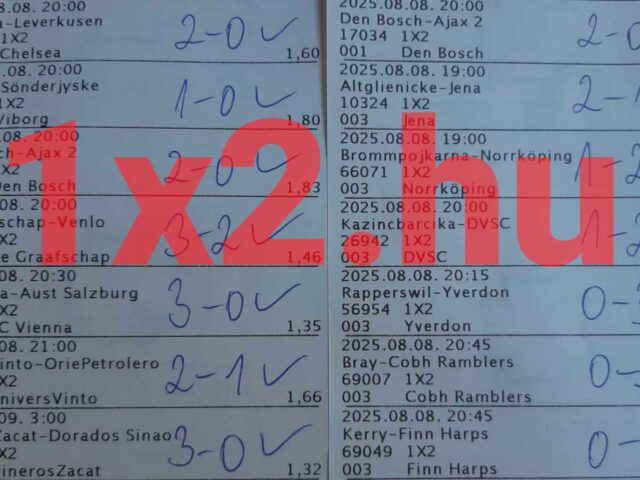 .08.08. 20:00
a-Leverkusen
1X2
Chelsea 1,60
2-0 ✓
.08. 20:00
Sönderjyske
1X2
Viborg 1,80
1-0 ✓
.08. 20:00
ch-Ajax 2
X2
Den Bosch 1,83
2-0 ✓
.08. 20:00
schap-Venlo
X2
e Graafschap 1,46
3-2 ✓
08. 20:30
a-Aust Salzburg
X2
C Vienna 1,35
3-0 ✓
08. 21:00
into-OriePetrolero
X2
niversVinto 1,66
2-1 ✓
09. 3:00
Zacat-Dorados Sinao
X2
inerosZacat 1,32
3-0 ✓
2025.08.08. 20:00
Den Bosch-Ajax 2
17034 1X2
001 Den Bosch
2-0
2025.08.08. 19:00
Altglienicke-Jena
10324 1X2
003 Jena
2-
2025.08.08. 19:00
Brommpojkarna-Norrköping
66071 1X2
003 Norrköping
1-2
2025.08.08. 20:00
Kazincbarcika-DVSC
26942 1X2
003 DVSC
1-2
2025.08.08. 20:15
Rapperswil-Yverdon
56954 1X2
003 Yverdon
0-3
2025.08.08. 20:45
Bray-Cobh Ramblers
69007 1X2
003 Cobh Ramblers
0-
2025.08.08. 20:45
Kerry-Finn Harps
69049 1X2
003 Finn Harps
0-
1x2.hu